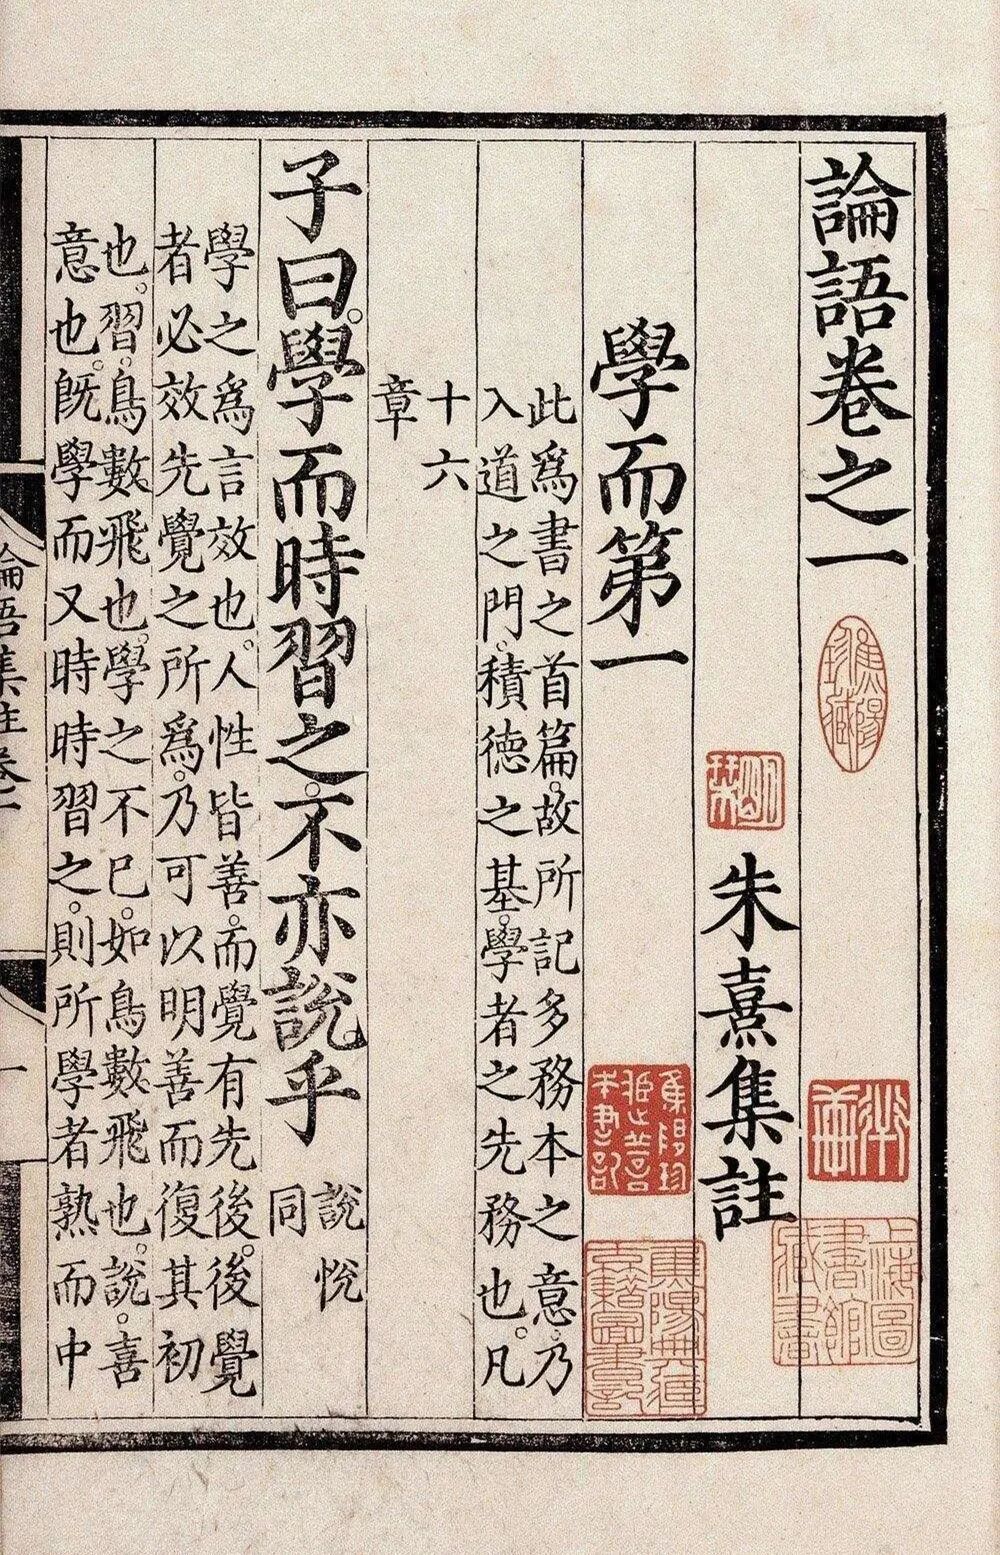 論語卷之一
朱熹集註
學而第一
此爲書之首篇。故所記多務本之意。乃
入道之門。積德之基。學者之先務也。凡
十六
章
子曰。學而時習之。不亦說乎
說悅
同
學之爲言效也。人性皆善。而覺有先後。後覺
者必效先覺之所爲。乃可以明善而復其初
也。習。鳥數飛也。學之不已。如鳥數飛也。說。喜
意也。既學而又時時習之。則所學者熟而中
論語集註卷一
一
上海圖
書館
藏書